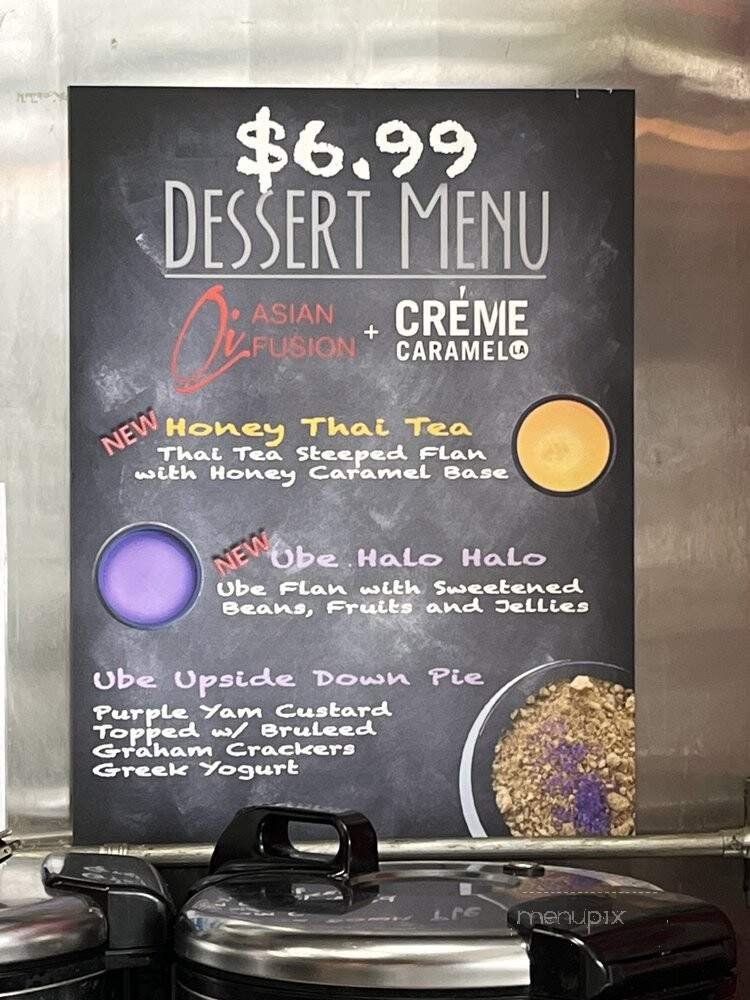 $6.99
DESSERT MENU
Qi ASIAN FUSION + CRÉME CARAMEL LA
NEW Honey Thai Tea
Thai Tea Steeped Flan
with Honey Caramel Base
NEW Ube Halo Halo
Ube Flan with Sweetened
Beans, Fruits and Jellies
Ube Upside Down Pie
Purple Yam Custard
Topped w/ Bruleed
Graham Crackers
Greek Yogurt
menupix